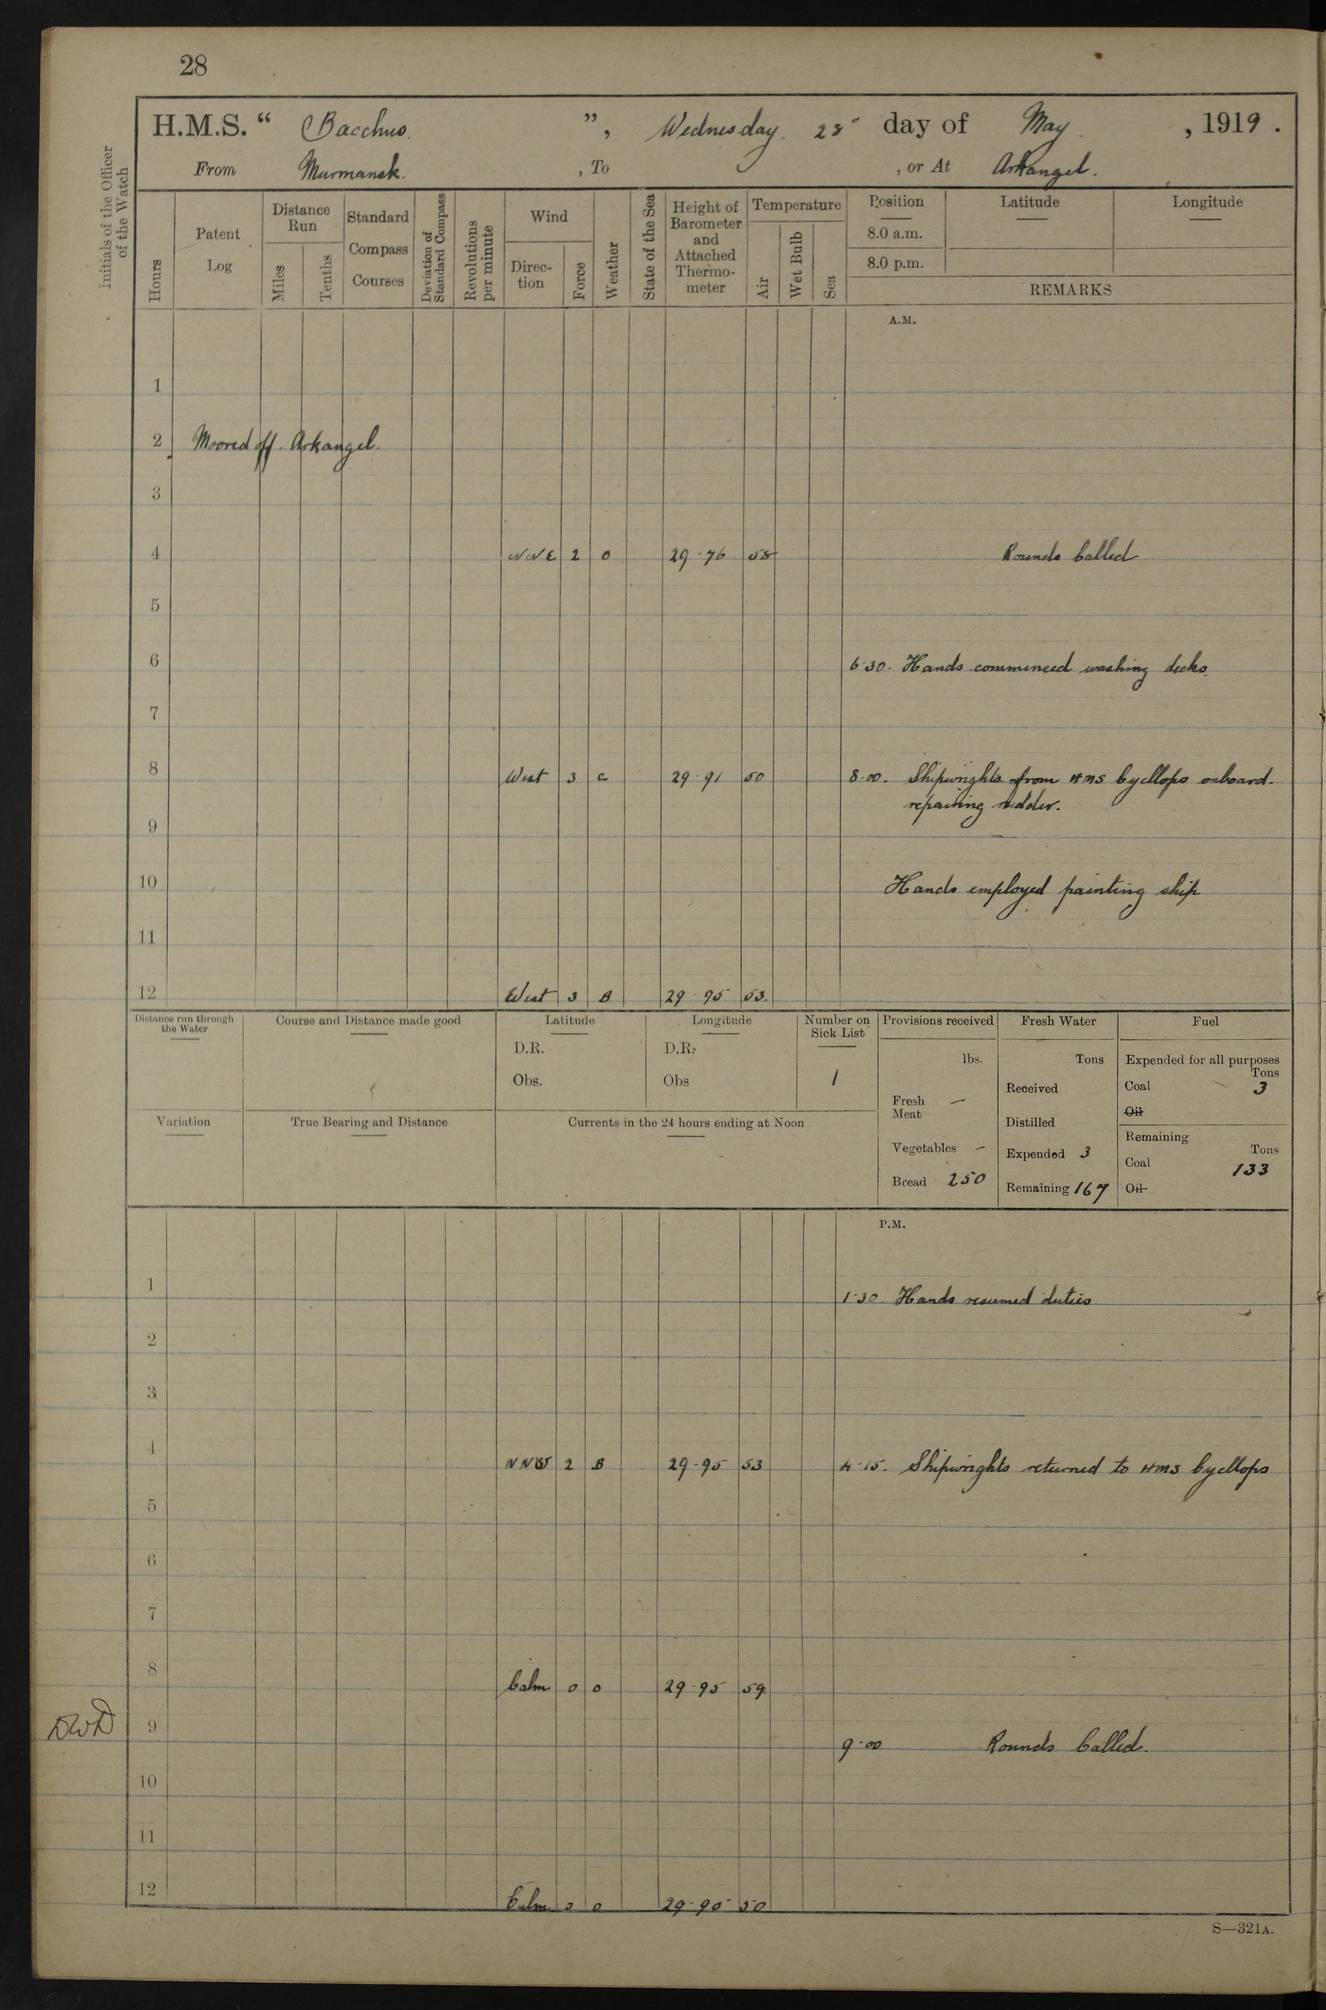 28
H.M.S. “ Bacchus. ”, Wednesday. 28" day of May. , 1919.
From Murmansk. , To , or At Arkangel.
Initials of the Officer of the Watch
Hours
Patent Log
Distance Run
Miles
Tenths
Standard Compass Courses
Deviation of Standard Compass
Revolutions per minute
Wind
Direction
Force
Weather
State of the Sea
Height of Barometer and Attached Thermometer
Temperature
Air
Wet Bulb
Sea
Position Latitude Longitude
8.0 a.m.
8.0 p.m.
REMARKS
A.M.
1
2 Moored off Arkangel.
3
4 NNE 2 o 29.76 58 Rounds Called
5
6 6.30. Hands commenced washing decks.
7
8 West 3 c 29.91 50 8.00. Shipwrights from HMS Cycllops onboard.
repairing rudder.
9
10 Hands employed painting ship
11
12 West 3 B 29.95 53.
Distance run through the Water
Course and Distance made good
Latitude
D.R.
Obs.
Longitude
D.R.
Obs
Number on Sick List
1
Variation
True Bearing and Distance
Currents in the 24 hours ending at Noon
Provisions received
lbs.
Fresh Meat —
Vegetables –
Bread 250
Fresh Water
Tons
Received
Distilled
Expended 3
Remaining 167
Fuel
Expended for all purposes
Tons
Coal 3
Oil
Remaining
Tons
Coal 133
Oil
P.M.
1 1.30 Hands resumed duties
2
3
4 NNW 2 B 29.95 53 4.15. Shipwrights returned to HMS Cycllops
5
6
7
8 Calm 0 o 29.95 59
DWD 9 9.00 Rounds Called.
10
11
12 Calm 0 o 29.95 50
S—321A.